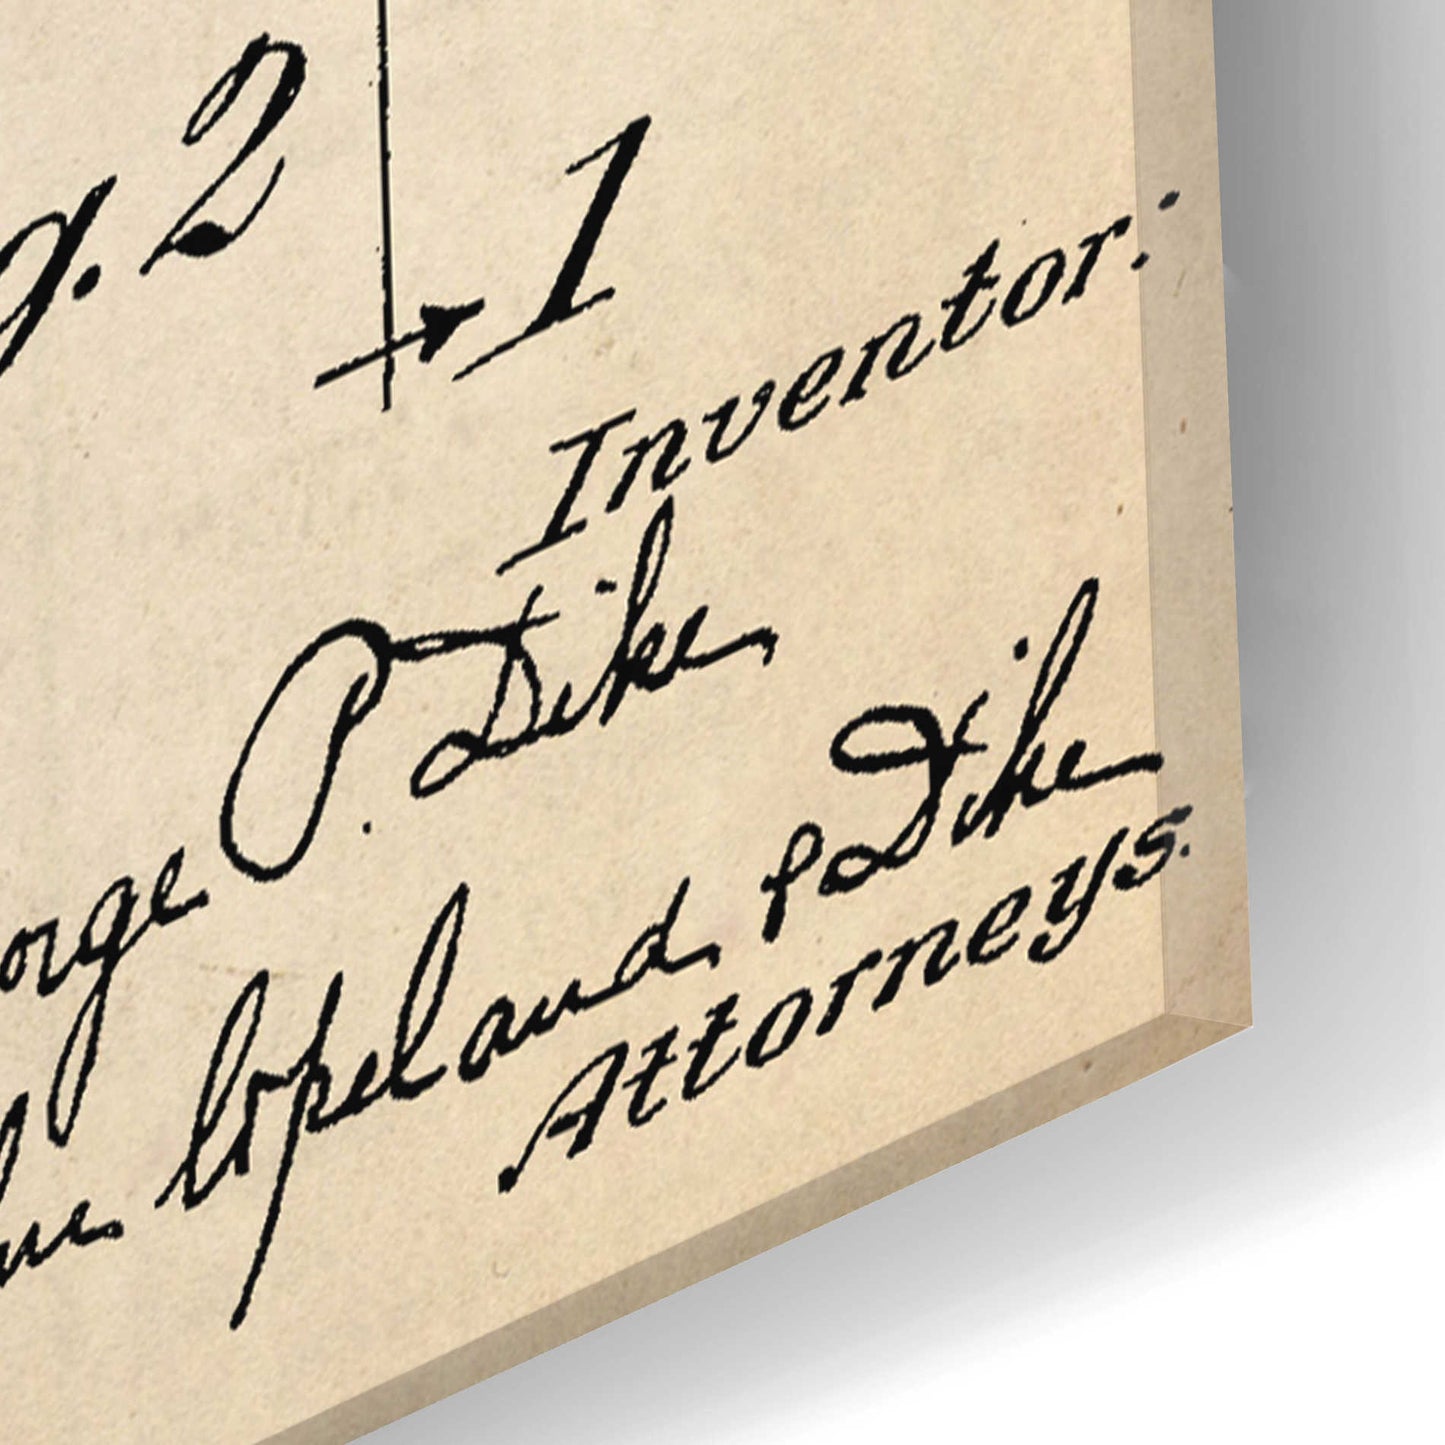 g. 2
1
Inventor:
orge P. Dike,
Copeland & Dike
Attorneys.